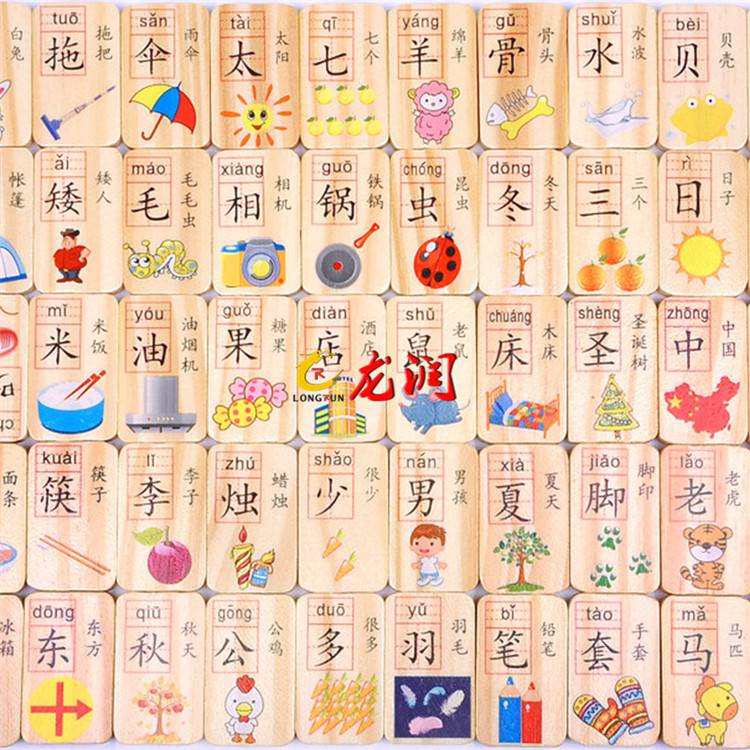 白兔
tuō
拖
拖把
sǎn
伞
雨伞
tài
太
太阳
qī
七
七个
yáng
羊
绵羊
gǔ
骨
骨头
shuǐ
水
水波
bèi
贝
贝壳
帐篷
ǎi
矮
矮人
máo
毛
毛毛虫
xiàng
相
相机
guō
锅
铁锅
chóng
虫
昆虫
dōng
冬
冬天
sān
三
三个
rì
日
日子
mǐ
米
米饭
yóu
油
油烟机
guǒ
果
糖果
diàn
店
酒店
HOTEL
shǔ
鼠
老鼠
chuáng
床
木床
shèng
圣
圣诞树
zhōng
中
中国
LONGRUN
龙润
面条
kuài
筷
筷子
lǐ
李
李子
zhú
烛
蜡烛
shǎo
少
很少
nán
男
男孩
xià
夏
夏天
jiǎo
脚
脚印
lǎo
老
老虎
冰箱
dōng
东
东方
qiū
秋
秋天
gōng
公
公鸡
duō
多
很多
yǔ
羽
羽毛
bǐ
笔
铅笔
tào
套
手套
mǎ
马
马匹